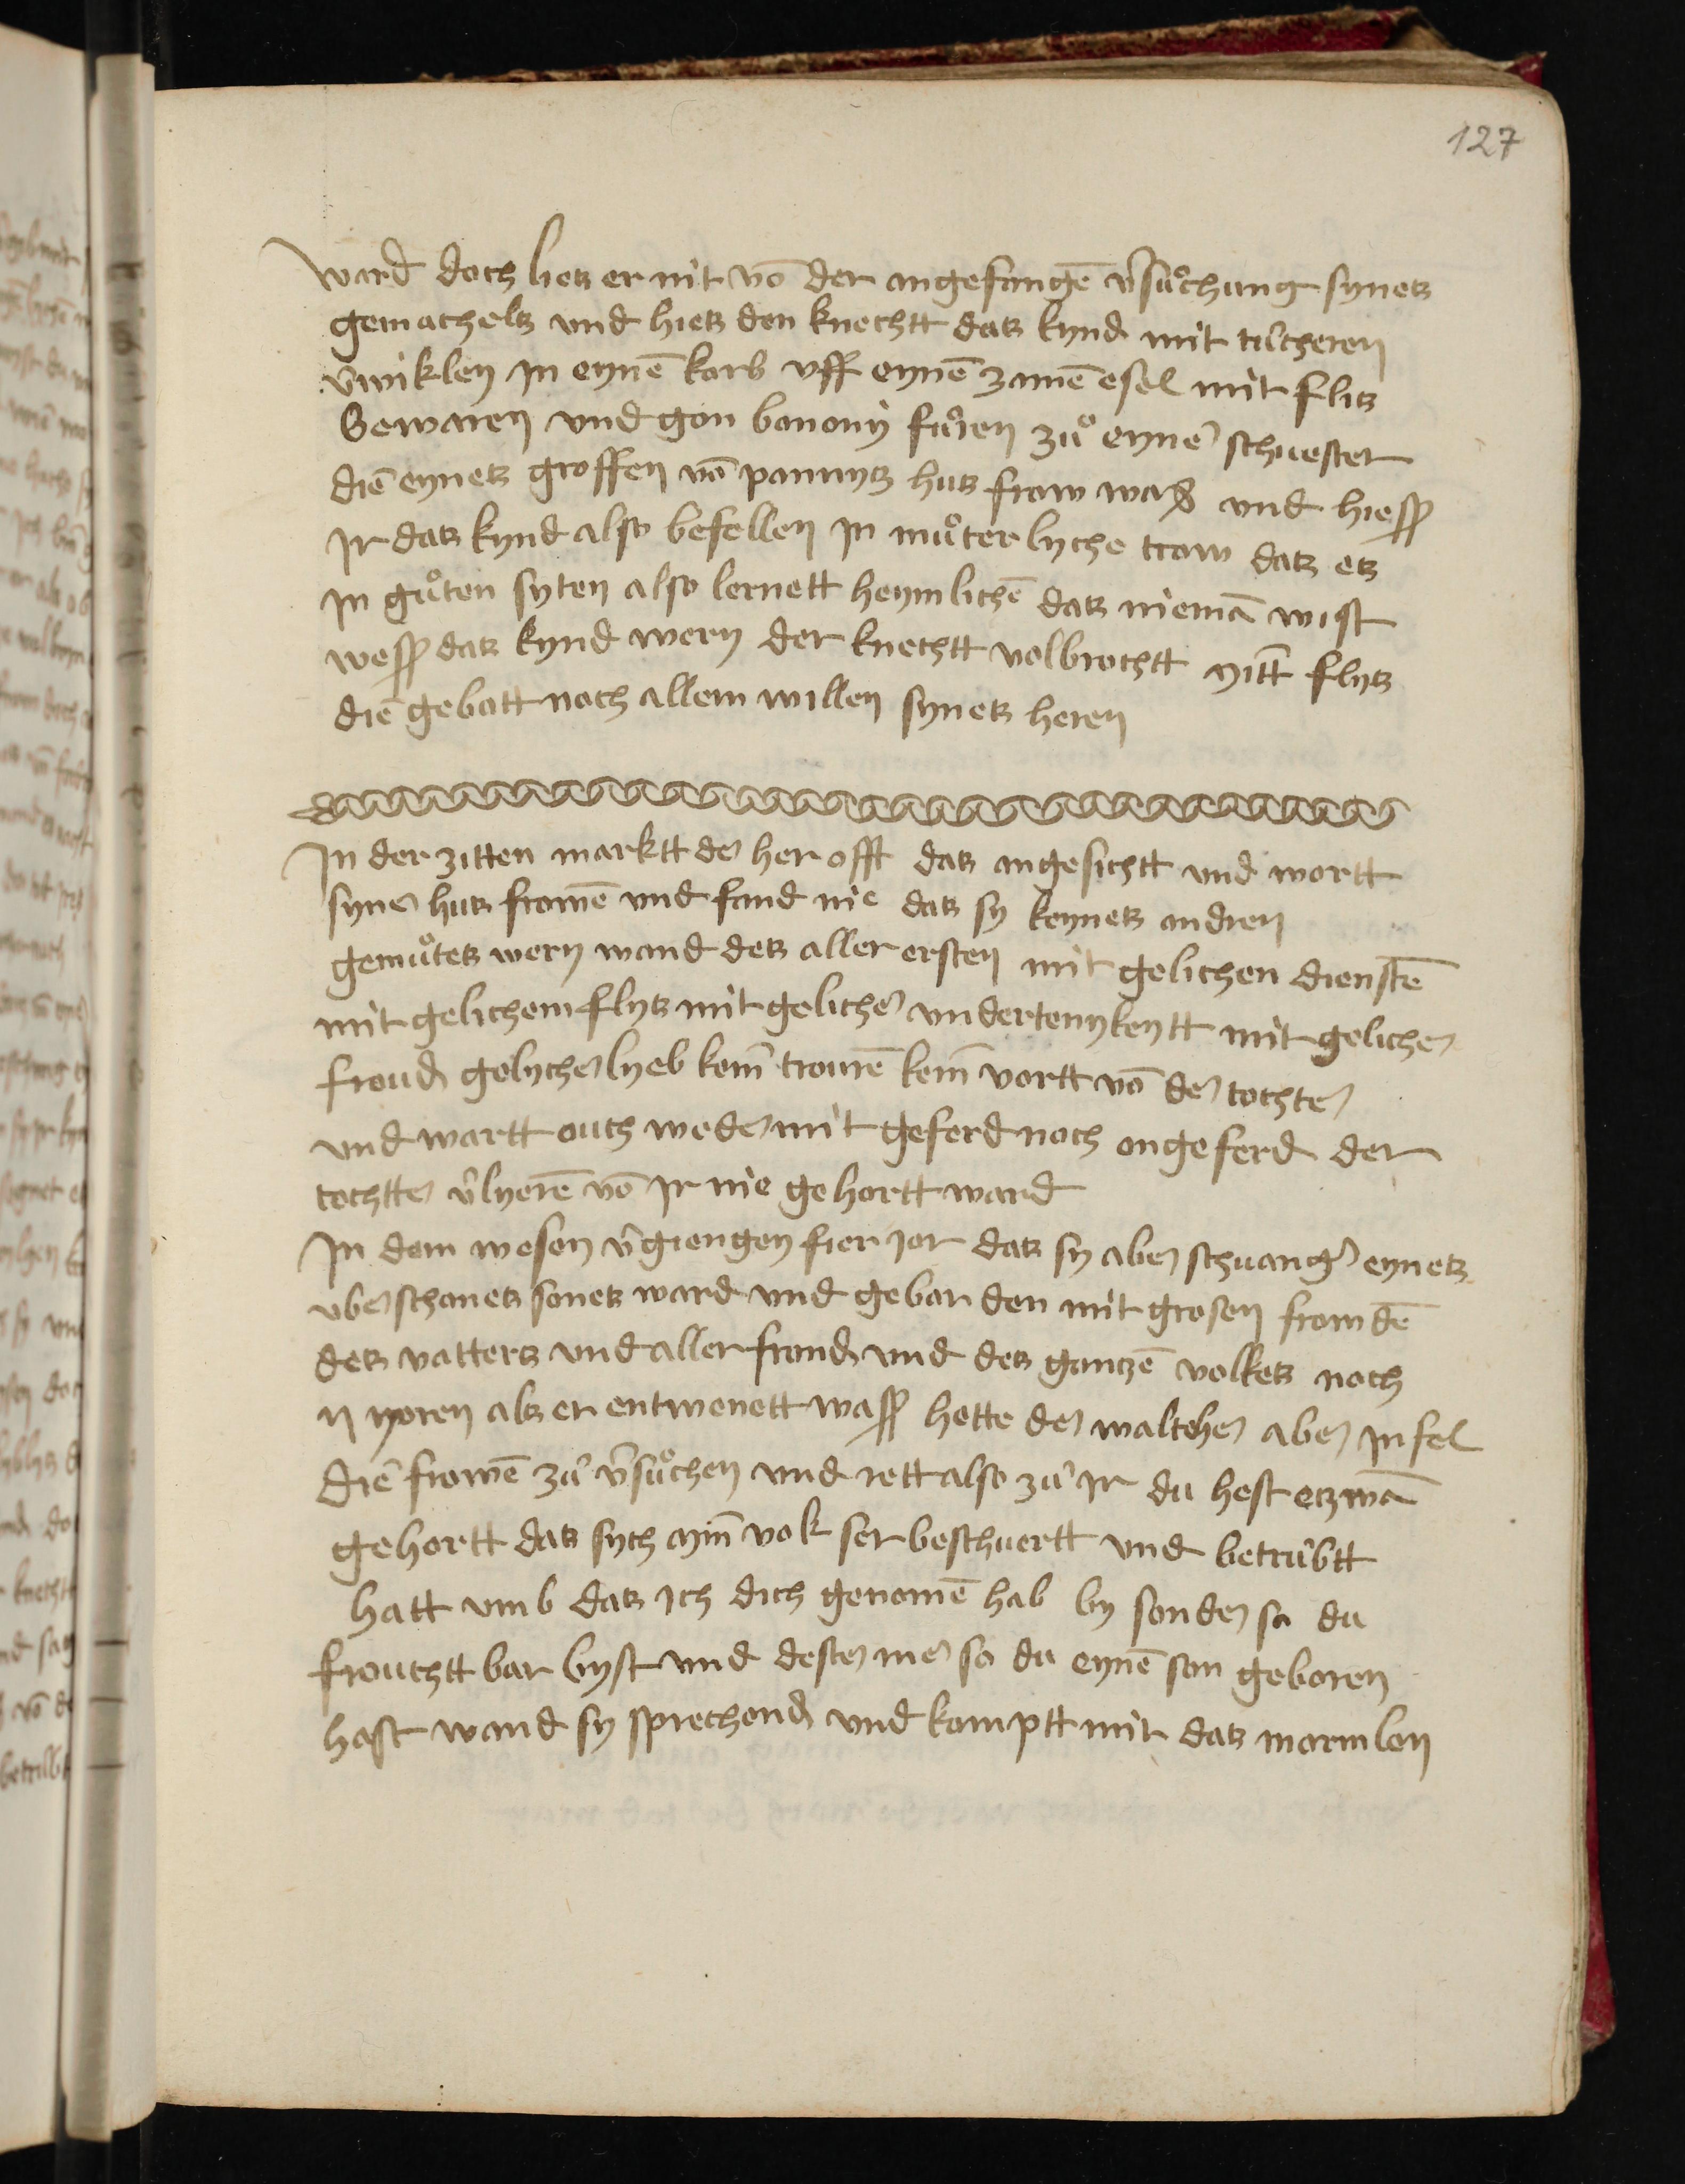 127
ward doch lies er nit vō der angefangē v̄sůchung synes
gemachels vnd hies den knechtt das kynd mit tůcheren
v̄wiklen jn eynē korb vff eynē zamē esel mit flis
bewaren vnd gon bonony fůren zů eyner schwester
die eynes groffen vō pannys hus frow was vnd hiess
jr das kynd also befellen jn můterlyche trow das es
jn gůten syten also lernett heymlichē das niemā wist
wess das kynd wery der knechtt volbrochtt mitt flys
die gebott noch allem willen synes heren
Jn der zitten marktt der her offt das angesichtt vnd wortt
syner hus frowē vnd fand nie das sy keynes andren
gemůtes wery wand des aller ersten mit gelichen dienstē
mit gelichem flys mit gelicher vndertenykeytt mit gelicher
froud gelycher lyeb kein trourē kein wortt vō der tochter
vnd wartt ouch weder mit geferd noch ongeferd der
tochtter v̄lyerē vō jr nie gehortt ward
Jn dem wesen v̄giengen fier jor das sy aber schwanger eynes
vber schones sones ward vnd gebar den mit grosen frowdē
des vatters vnd aller frond vnd des gantzē volkes noch
ij yoren als er entwenett wass hette der waltcher aber jnfel
die frowē zů v̄sůchen vnd rett also zů jr du hest etzwā
gehortt das sych myn volk ser beschwertt vnd betrůbtt
hatt vmb das ich dich genomē hab by sonder so du
frouchttbar byst vnd dester mer so du eynē son geboren
hast wand sy sprechend vnd komptt mir das mormlen